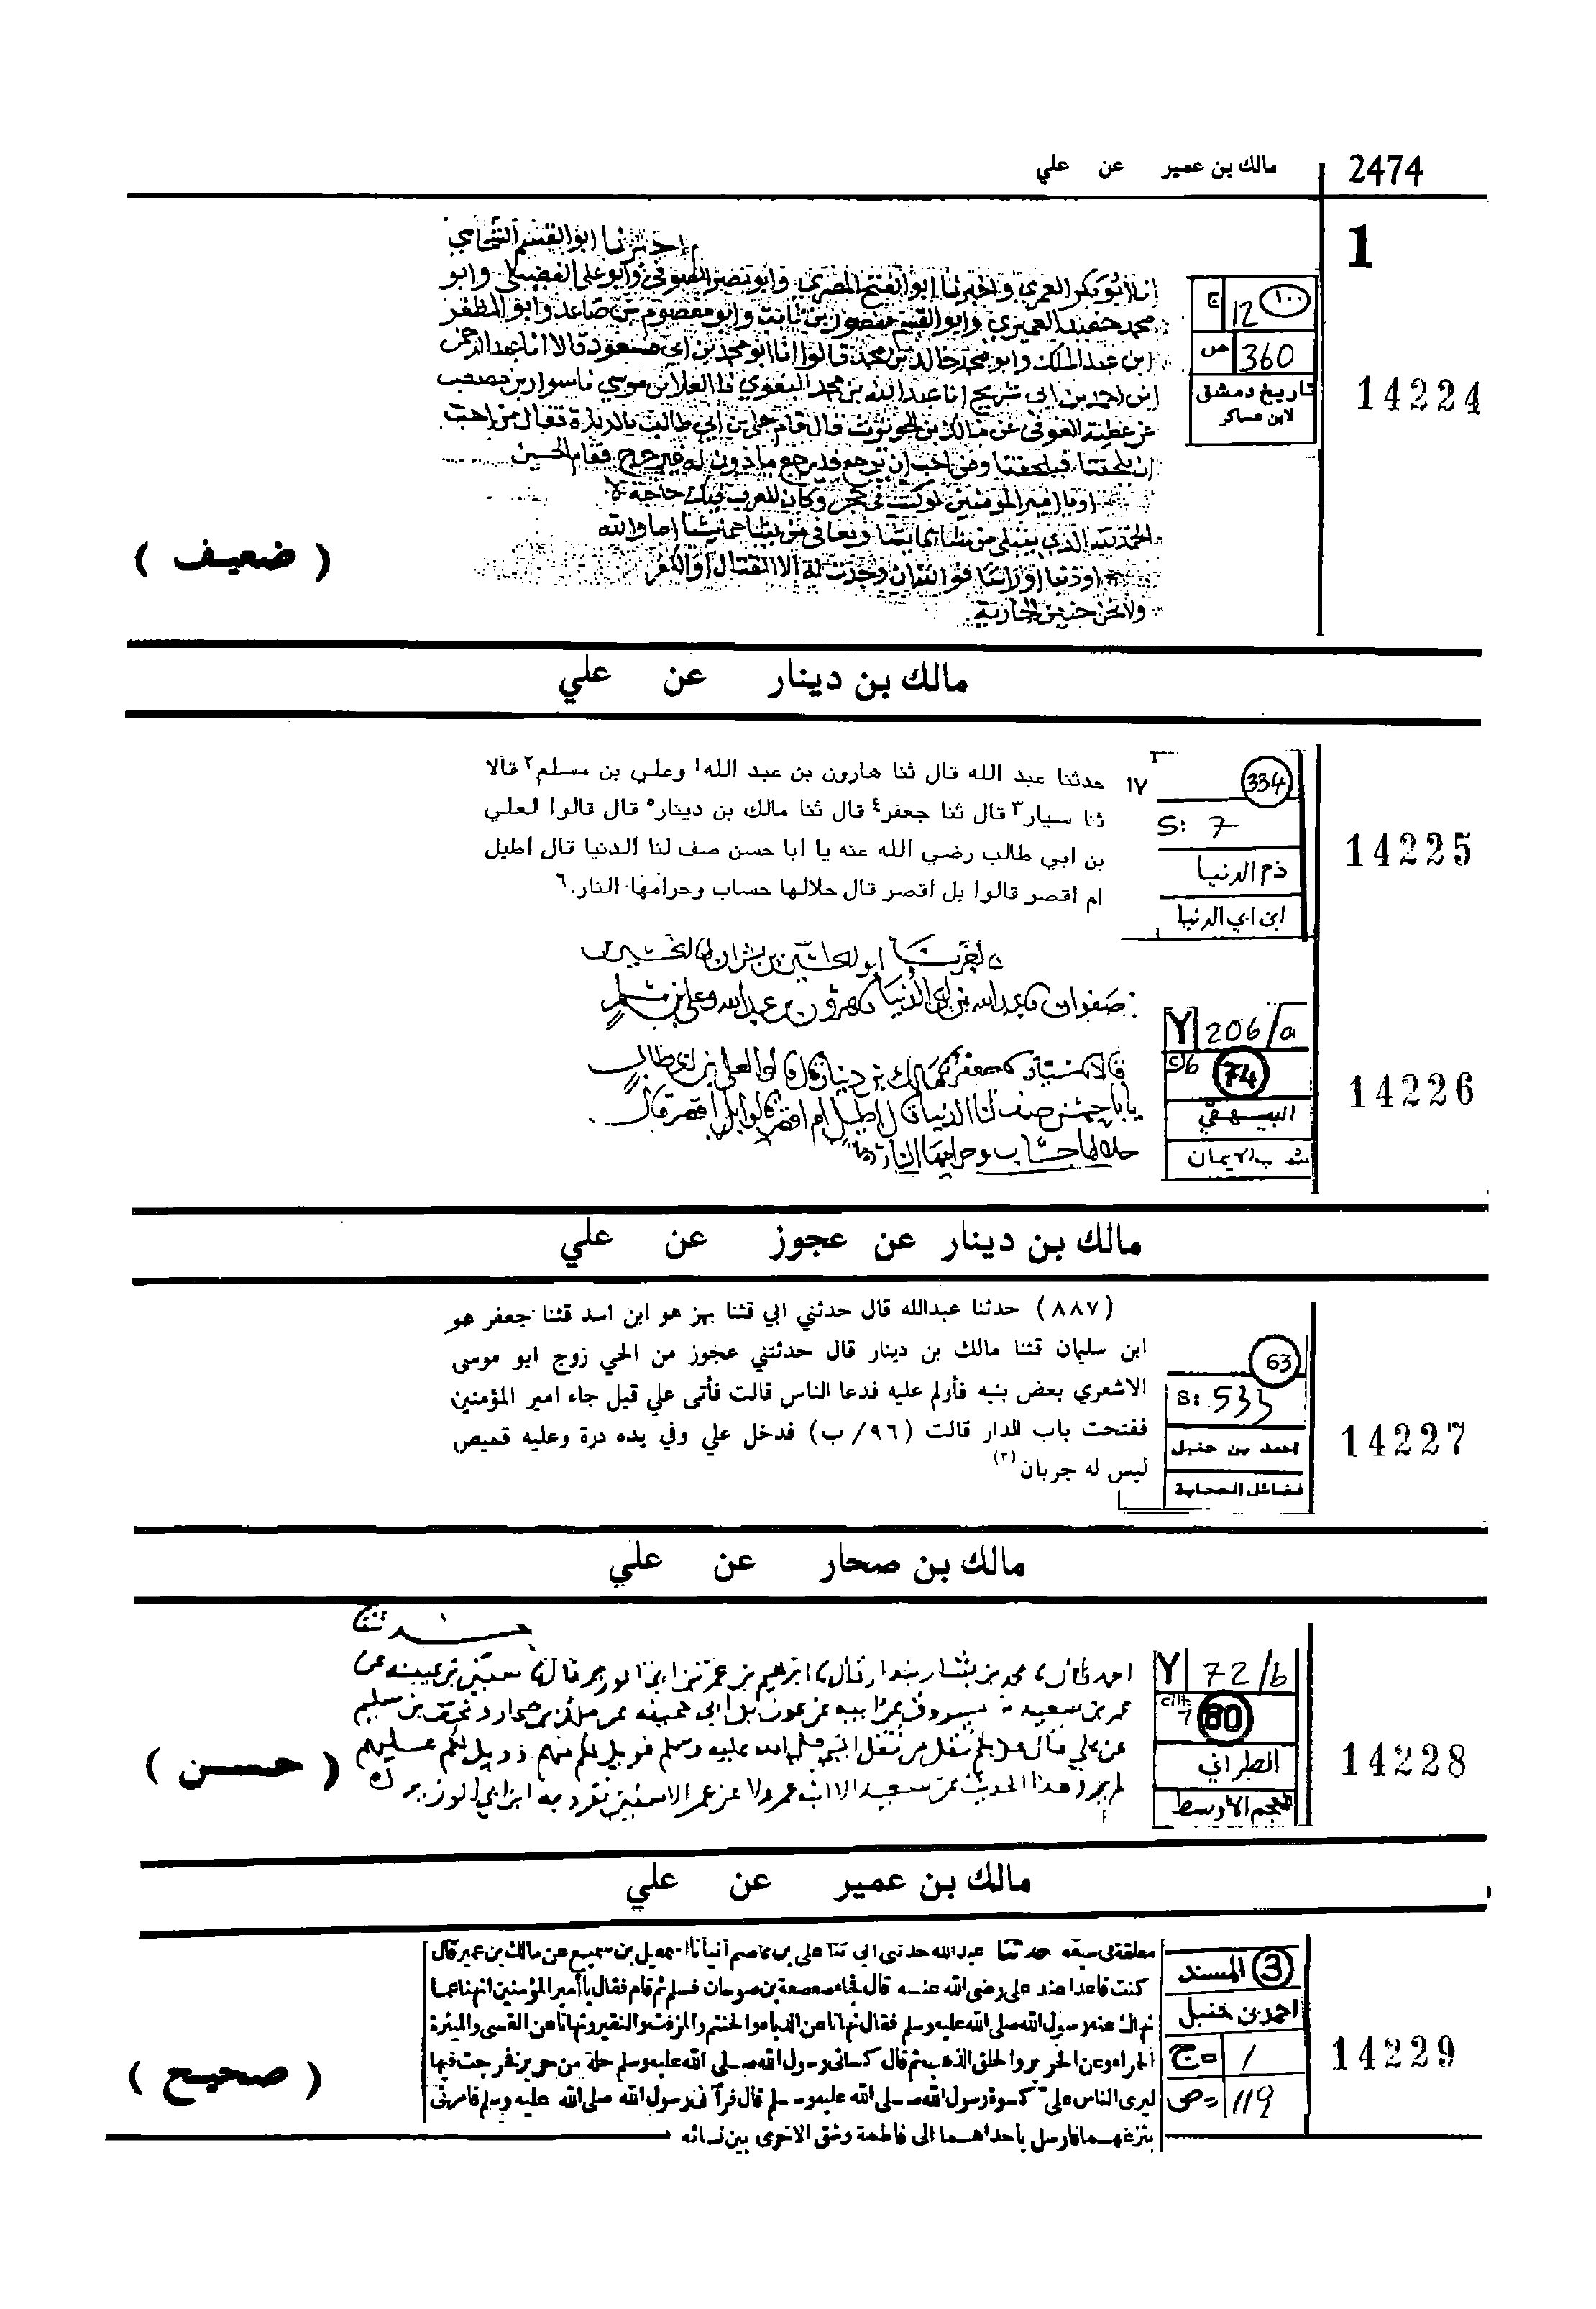 2474
مالك بن عمير عن علي
1
ج 12 ١٠٠
ص 360
تاريخ دمشق
لابن عساكر
14224
اخبرنا ابو القسم الشحامي
انا ابو بكر العمري واخبرنا ابو الفتح المصري وابو نصر الصوفي وابو علي الفضيلي وابو
محمد حفيد العميري وابو القسم منصور بن ثابت وابو معصوم بن صاعد وابو المظفر
ابن عبد الملك وابو محمد خالد بن محمد قالوا انا ابو محمد بن ابى مسعود قالا انا عبد الرحمن
ابن احمد بن ابى شريح انا عبد الله بن محمد البغوي نا العلا بن موسي نا سوار بن مصعب
عن عطية العوفي عن مالك بن الجويرث قال قام علي بن ابي طالب بالربذة فقال من احب
ان يلحقنا فيلحقنا ومن احب ان يرجع فليرجع ماذون له غير حرج فقام الحسن
يا امير المومنين لو كنت في جحر وكان للعرب فيك حاجة
الحمد لله الذي يبتلي من يشا بما يشا ويعافي من يشا اما والله
فوالله ان وجدت له الا القتال او الكفر
( ضعيف )
مالك بن دينار عن علي
334
S: 7
ذم الدنيا
ابن ابي الدنيا
14225
١٧ حدثنا عبد الله قال ثنا هارون بن عبد الله١ وعلي بن مسلم٢ قالا
ثنا سيار٣ قال ثنا جعفر٤ قال ثنا مالك بن دينار٥ قال قالوا لعلي
بن ابي طالب رضي الله عنه يا ابا حسن صف لنا الدنيا قال اطيل
ام اقصر قالوا بل اقصر قال حلالها حساب وحرامها النار.٦
Y 206/a
74
البيهقي
شعب الايمان
14226
اخبرنا ابو الحسين بن بشران انا الحسين بن
صفوان نا عبد الله بن ابي الدنيا نا هرون بن عبد الله وعلي بن مسلم
قالا نا سيار نا جعفر نا مالك بن دينار قال قالوا لعلي بن ابي طالب
يا ابا حسن صف لنا الدنيا قال اطيل ام اقصر قالوا بل اقصر قال
حلالها حساب وحرامها النار
مالك بن دينار عن عجوز عن علي
63
S: 533
احمد بن حنبل
فضائل الصحابة
14227
(٨٨٧) حدثنا عبدالله قال حدثني ابي قثنا بهز هو ابن اسد قثنا جعفر هو
ابن سليمان قثنا مالك بن دينار قال حدثتني عجوز من الحي زوج ابو موسى
الاشعري بعض بنيه فأولم عليه فدعا الناس قالت فأتى علي قيل جاء امير المؤمنين
ففتحت باب الدار قالت (٩٦/ب) فدخل علي وفي يده درة وعليه قميص
ليس له جربان(٣)
مالك بن صحار عن علي
Y 72/b
cilt 7 80
الطبراني
المعجم الأوسط
14228
حدثنا
احمد قال نا محمد بن بشار بندار قال نا ابراهيم بن عمر بن ابي الوزير قال نا سفين بن عيينه عن
عمر بن سعيد بن مسروق عن ابيه عن عون بن ابي جحيفه عن ملك بن صحار
عن علي قال
لم يرو هذا الحديث عن سعيد الا ابنه عمر ولا عن عمر الا سفين تفرد به ابن ابي الوزير
( حسن )
مالك بن عمير عن علي
3 المسند
احمد بن حنبل
ج= 1
ص= 119
14229
معلقة في سيفه حدثنا عبد الله حدثني ابي ثنا علي بن عاصم أنبأنا اسمعيل بن سميع عن مالك بن عمير قال
كنت قاعدا عند على رضى الله عنه قال فجاء صعصعة بن صوحان فسلم ثم قام فقال يا أمير المؤمنين انهنا عما
نهاك عنه رسول الله صلى الله عليه وسلم فقال نهانا عن الدباء والحنتم والمزفت والنقير ونهانا عن القسى والميثرة
الحمراء وعن الحرير والحلق الذهب ثم قال كسانى رسول الله صلى الله عليه وسلم حلة من حرير فخرجت فيها
ليرى الناس على كسوة رسول الله صلى الله عليه وسلم قال فرآنى رسول الله صلى الله عليه وسلم فامرنى
بنزعهما فارسل باحداهما الى فاطمة وشق الاخرى بين نسائه
( صحيح )